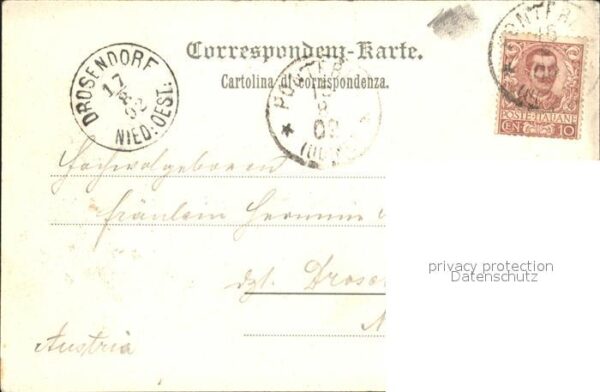 Correspondenz-Karte.
Cartolina di corrispondenza.
DROSENDORF
17
8
02
NIED:OEST:
POSTE·ITALIANE
CEN 10
Hochwolgeboren
Fräulein Hermine
dzt. Drose
N
Austria
privacy protection
Datenschutz